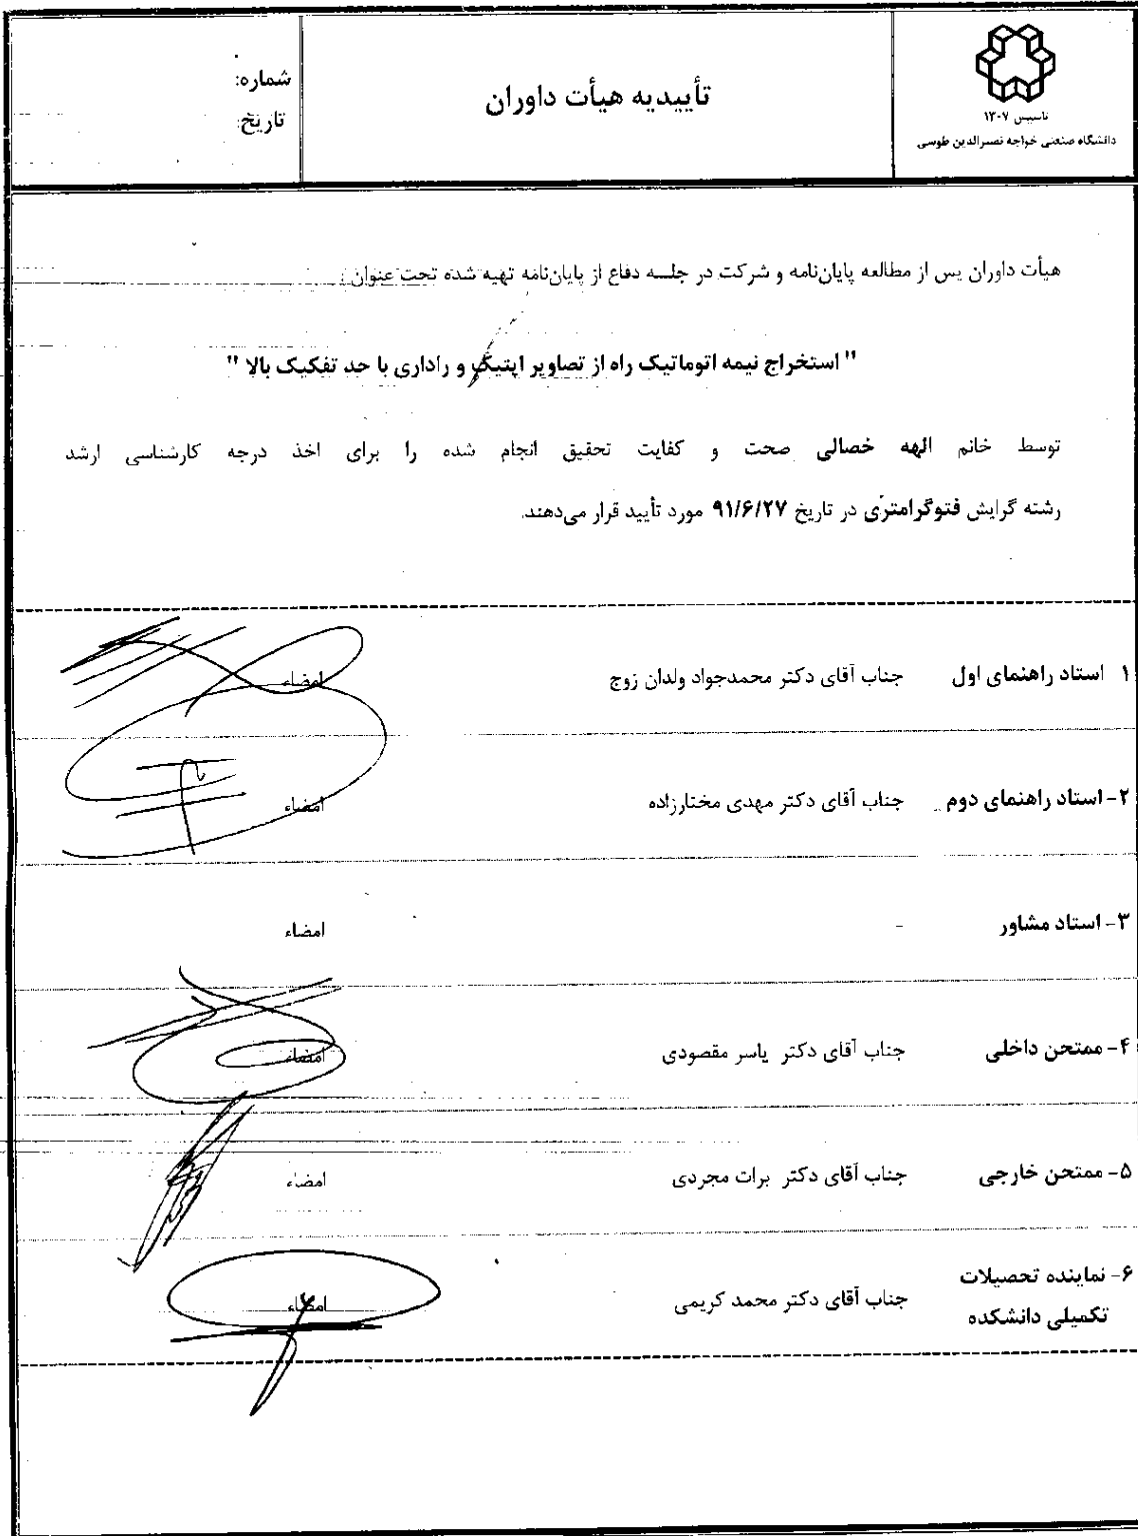 تاسیس ۱۳۰۷
دانشگاه صنعتی خواجه نصیرالدین طوسی
تأییدیه هیأت داوران
شماره:
تاریخ:
هیأت داوران پس از مطالعه پایان‌نامه و شرکت در جلسه دفاع از پایان‌نامه تهیه شده تحت عنوان :
" استخراج نیمه اتوماتیک راه از تصاویر اپتیک و راداری با حد تفکیک بالا "
توسط خانم الهه خصالی صحت و کفایت تحقیق انجام شده را برای اخذ درجه کارشناسی ارشد
رشته گرایش فتوگرامتری در تاریخ ۹۱/۶/۲۷ مورد تأیید قرار می‌دهند.
۱ استاد راهنمای اول جناب آقای دکتر محمدجواد ولدان زوج امضاء
۲- استاد راهنمای دوم جناب آقای دکتر مهدی مختارزاده امضاء
۳- استاد مشاور - امضاء
۴- ممتحن داخلی جناب آقای دکتر یاسر مقصودی امضاء
۵- ممتحن خارجی جناب آقای دکتر برات مجردی امضاء
۶- نماینده تحصیلات
تکمیلی دانشکده جناب آقای دکتر محمد کریمی امضاء